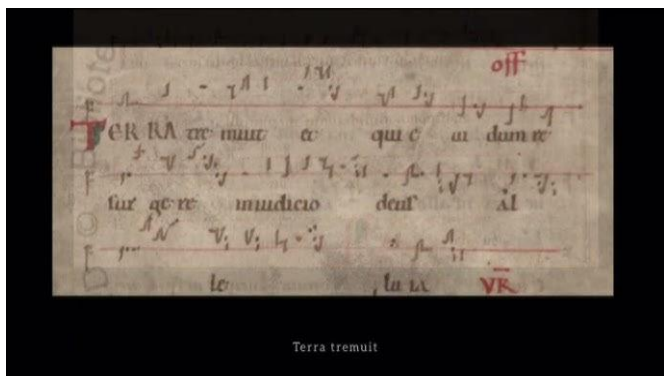 off
TER RA tre muit et qui e ui dum re
sur ge re iniudicio deus Al
le lu ia VR
Terra tremuit